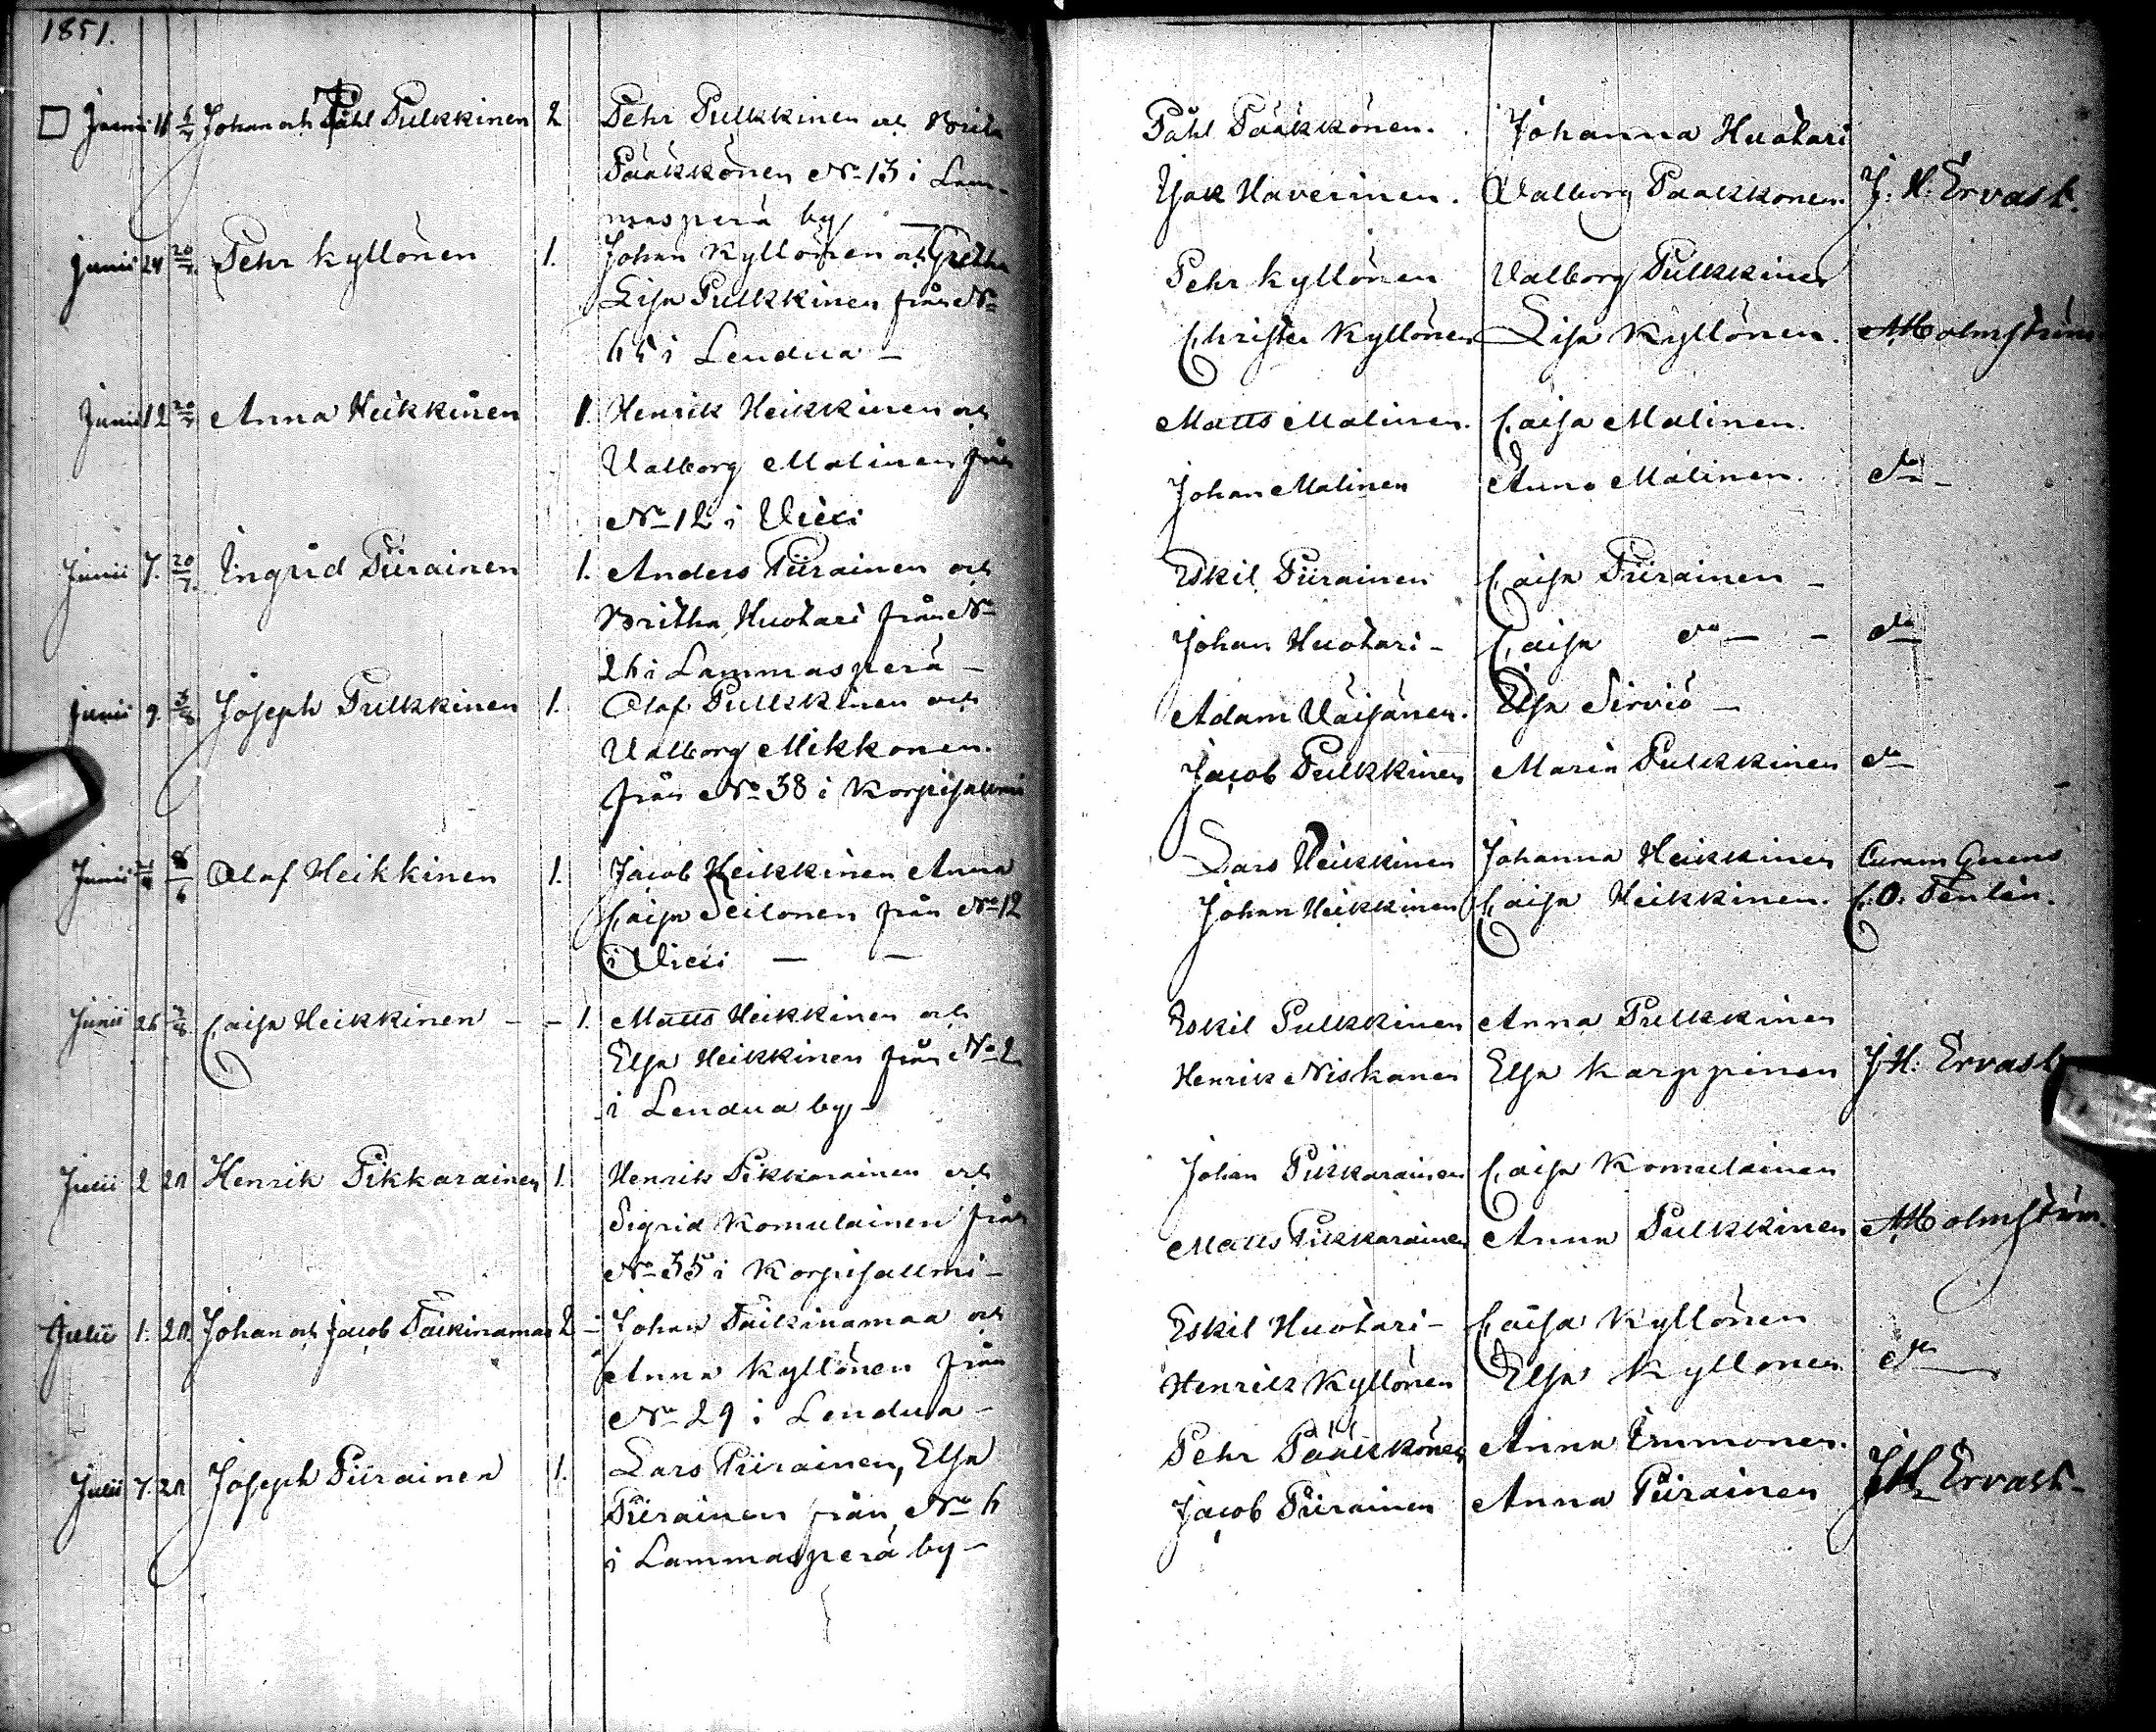 1851.
Junii 11 6/7 Johan och Påhl Pulkkinen 2 Pehr Pulkkinen och Brita
Pääkkönen No 13 i Lam-
masperä by
Junii 24 20/7 Pehr Kyllönen 1. Johan Kyllönen och Gretha
Lisa Pulkkinen från No
65 i Lendua -
Junii 12 20/7 Anna Heikkinen 1. Henrik Heikkinen och
Valborg Malinen från
No 12 i Vieki
Junii 7. 20/7. Ingrid Piirainen 1. Anders Piirainen och
Britha Huotari från No
26 i Lammasperä -
Junii 9. 3/8 Joseph Pulkkinen 1. Olof Pulkkinen och
Valborg Mikkonen.
från No 38 i Korpisalmi
Junii Olof Heikkinen 1. Jacob Heikkinen Anna
Caisa Seilonen från No 12
i Vieki - -
Junii 26 3/8 Caisa Heikkinen - - 1. Matts Heikkinen och
Elsa Heikkinen från No 2
i Lendua by -
Julii 2 20 Henrik Pikkarainen 1. Henrik Pikkarainen och
Sigrid Komulainen från
No 35 i Korpisallmi -
Julii 1. 20 Johan och Jacob Päikinamaa 2 - Johan Päikinamaa och
Anna Kyllönen från
No 29 i Lendua -
Julii 7. 20 Joseph Piirainen 1. Lars Piirainen, Elsa
Piirainen från No 6
i Lammasperä by -
Påhl Pääkkönen. Johanna Huotari
Isak Haverinen. Valborg Pääkkönen. J. H. Ervast.
Pehr Kyllönen Valborg Pulkkinen
Christer Kyllönen Lisa Kyllönen. A Holmström
Matts Malinen. Caisa Malinen.
Johan Malinen Anna Malinen. do -
Eskil Piirainen Caisa Piirainen -
Johan Huotari - Caisa do - - do
Adam Väisänen. Elsa Sirviö -
Jacob Pulkkinen Maria Pulkkinen do
Lars Heikkinen Johanna Heikkinen Curam Gerens
Johan Heikkinen Caisa Heikkinen. C. O. Fenlin.
Eskil Pulkkinen Anna Pulkkinen
Henrik Niskanen Elsa Karppinen J. H. Ervast
Johan Pikkarainen Caisa Komulainen
Matts Pikkarainen Anna Pulkkinen A Holmström.
Eskil Huotari - Caisa Kyllönen
Henrik Kyllönen Elsa Kyllönen do
Pehr Pääkkönen Anna Immonen.
Jacob Piirainen Anna Piirainen J H Ervast -